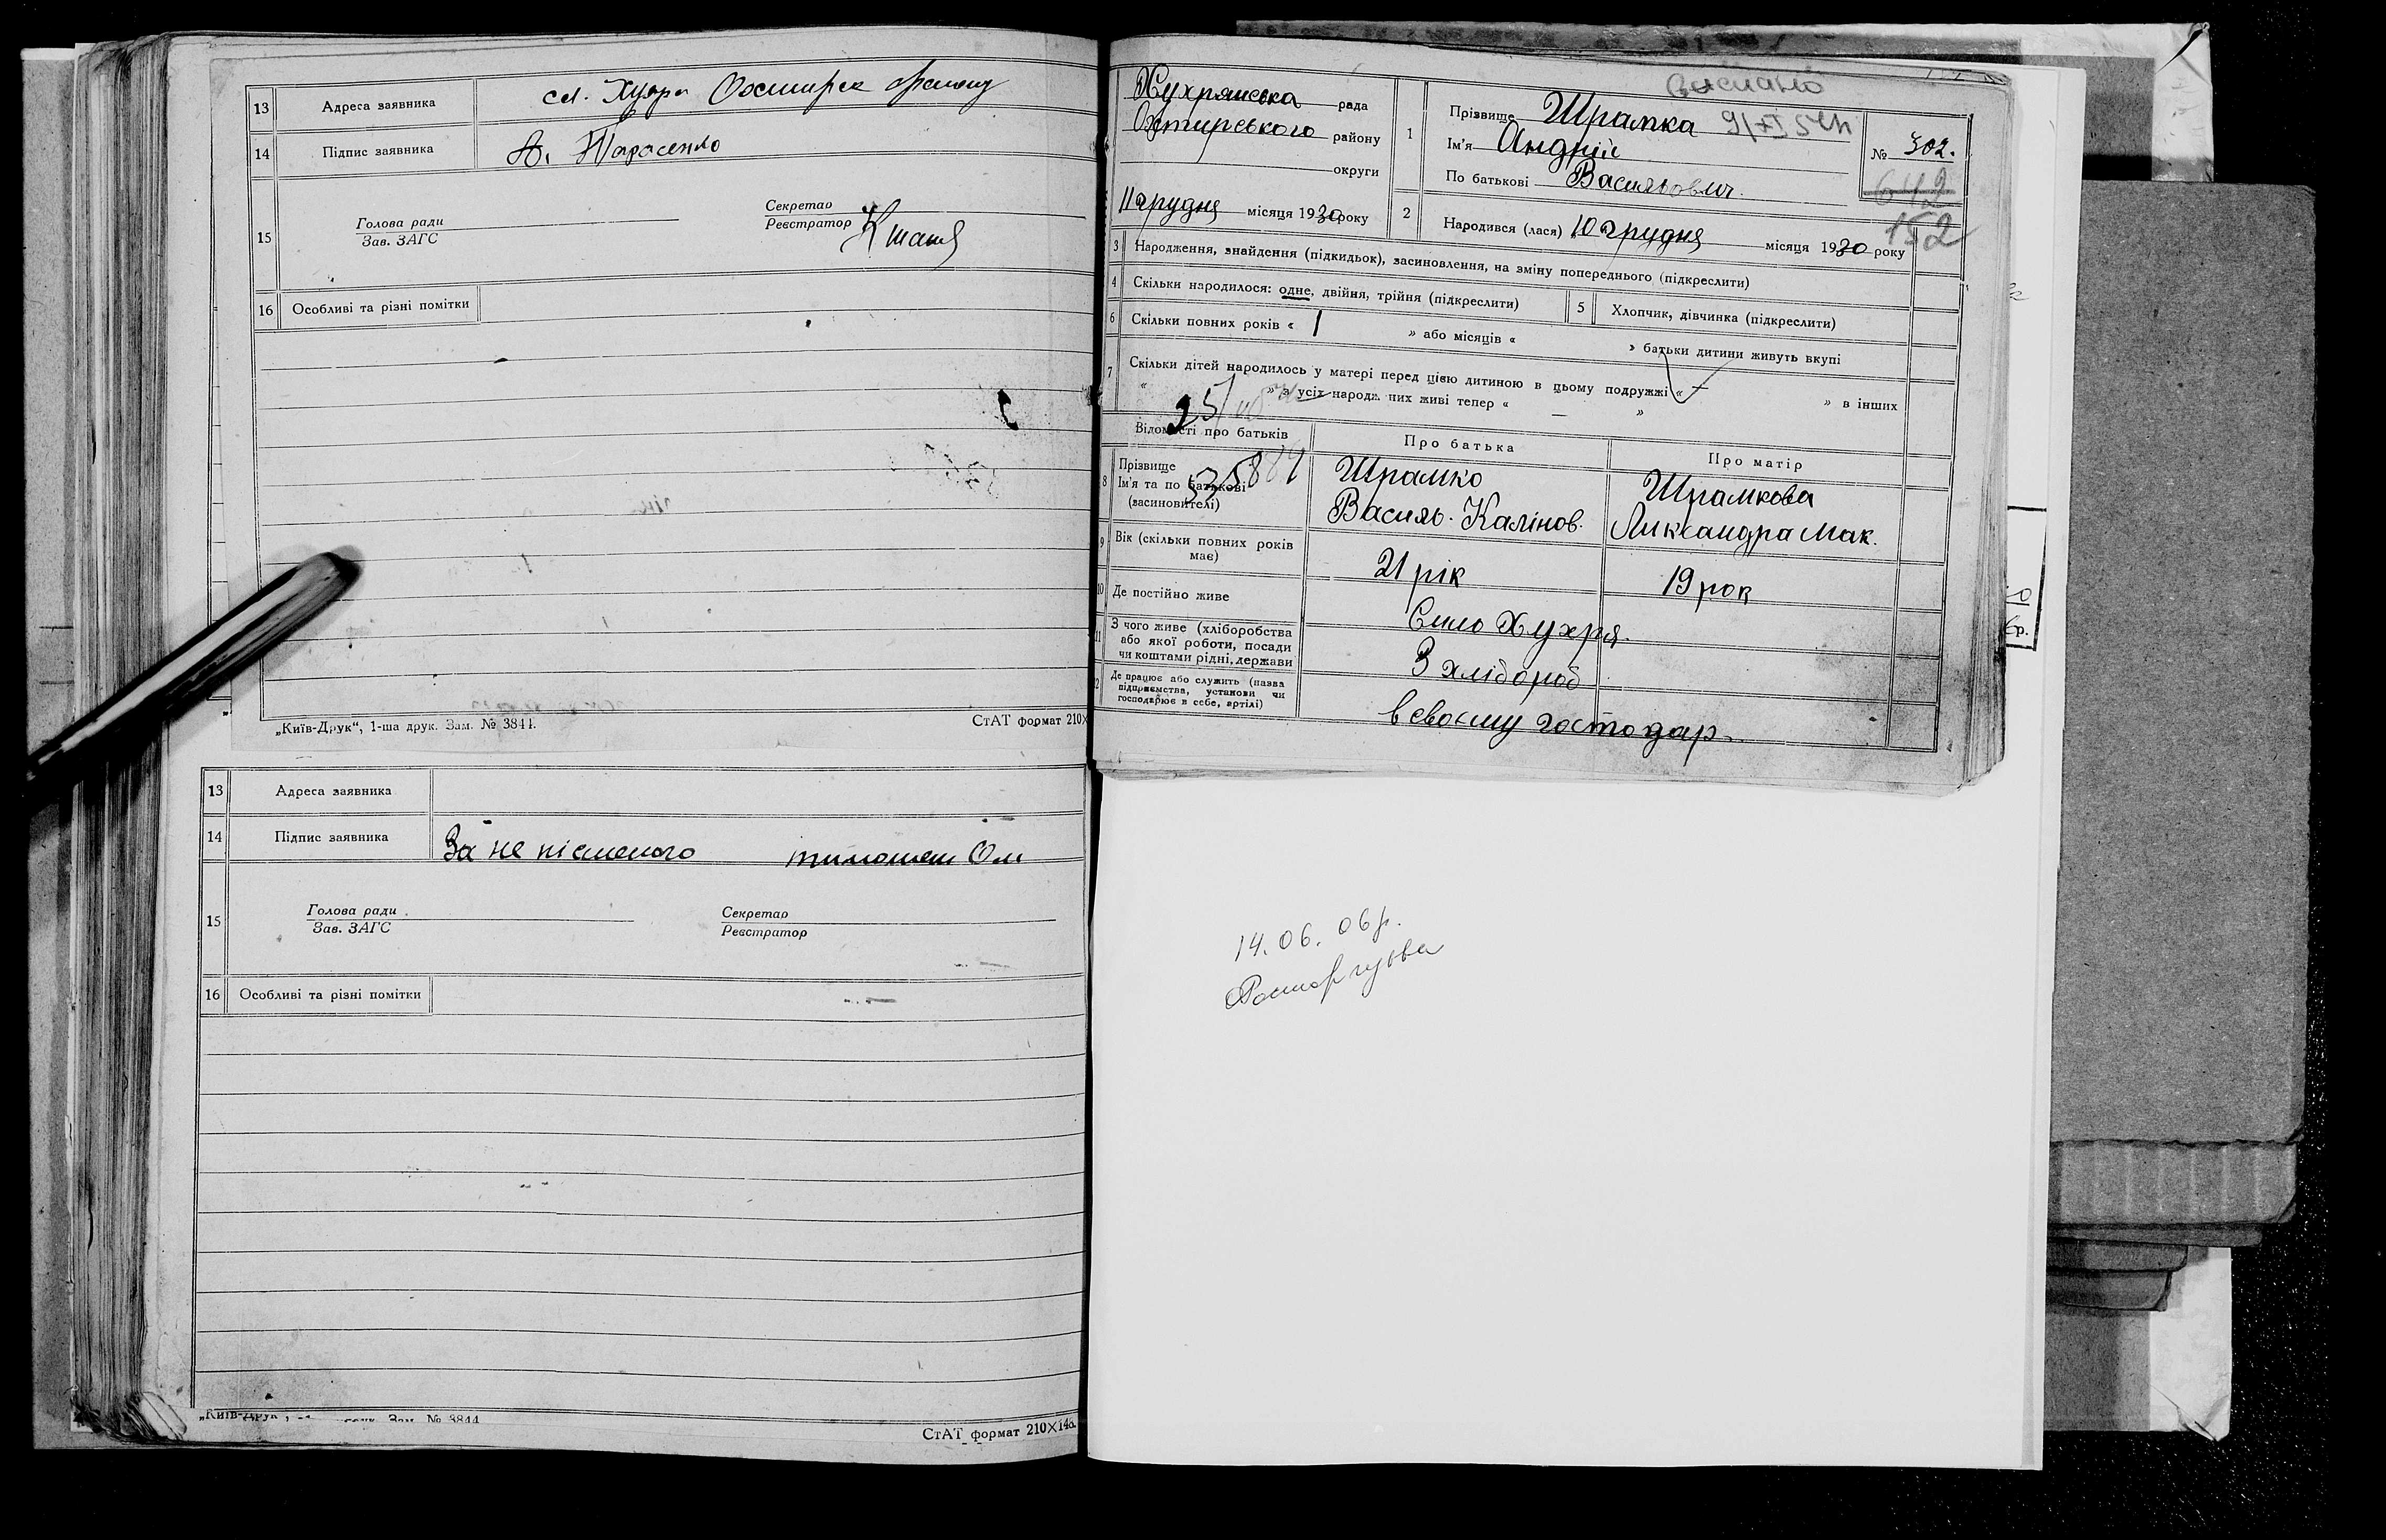 13 Адреса заявника сл. Хухра Охтирск району
14 Підпис заявника А. Тарасенко
15 Голова ради
Зав. ЗАГС
Секретар
Реєстратор
16 Особливі та різні помітки
„Київ-Друк“, 1-ша друк. Зам. № 3844.
СтАТ формат 210×
13 Адреса заявника
14 Підпис заявника За не písменого
15 Голова ради
Зав. ЗАГС
Секретар
Реєстратор
16 Особливі та різні помітки
„Київ-Друк“, Зам. № 3844
СтАТ формат 210×148.
Хухрянська рада
Охтирського району
округи
11 грудня місяця 1930 року
1 Прізвище Шрамка
Ім'я Андрій
По батькові Васильович.
№ 302.
642
152
2 Народився (лася) 10 грудня місяця 1930 року
3 Народження, знайдення (підкидьок), засиновлення, на зміну попереднього (підкреслити)
4 Скільки народилося: одне, двійня, трійня (підкреслити)
5 Хлопчик, дівчинка (підкреслити)
6 Скільки повних років « 1 » або місяців « » батьки дитини живуть вкупі
7 Скільки дітей народилось у матері перед цією дитиною в цьому подружжі « — » в інших
« » з усіх народж. них живі тепер « — »
Відомості про батьків
Про батька
Про матір
8 Прізвище
Ім'я та по батькові
(засиновителі)
Шрамко
Василь. Калінов.
Шрамкова
Александра Мак.
9 Вік (скільки повних років має)
21 рік
19 рок
10 Де постійно живе
Село Хухря.
11 З чого живе (хліборобства
або якої роботи, посади
чи коштами рідні, держави
З хлібороб
12 Де працює або служить (назва
підприємства, установи чи
господарює в себе, артілі)
в своєму господар.
14.06.06р.